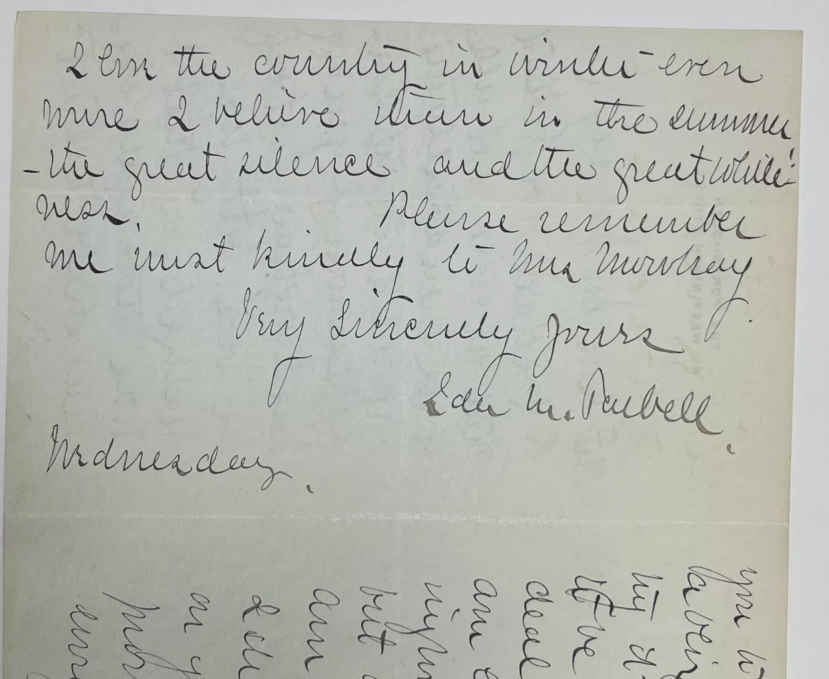 I love the country in winter even
more I believe than in the summer
- the great silence and the great white-
ness. Please remember
me most kindly to Mrs Mowbray
Very Sincerely yours
Ida M. Tarbell.
Wednesday.
you
deal
am
but
am
I